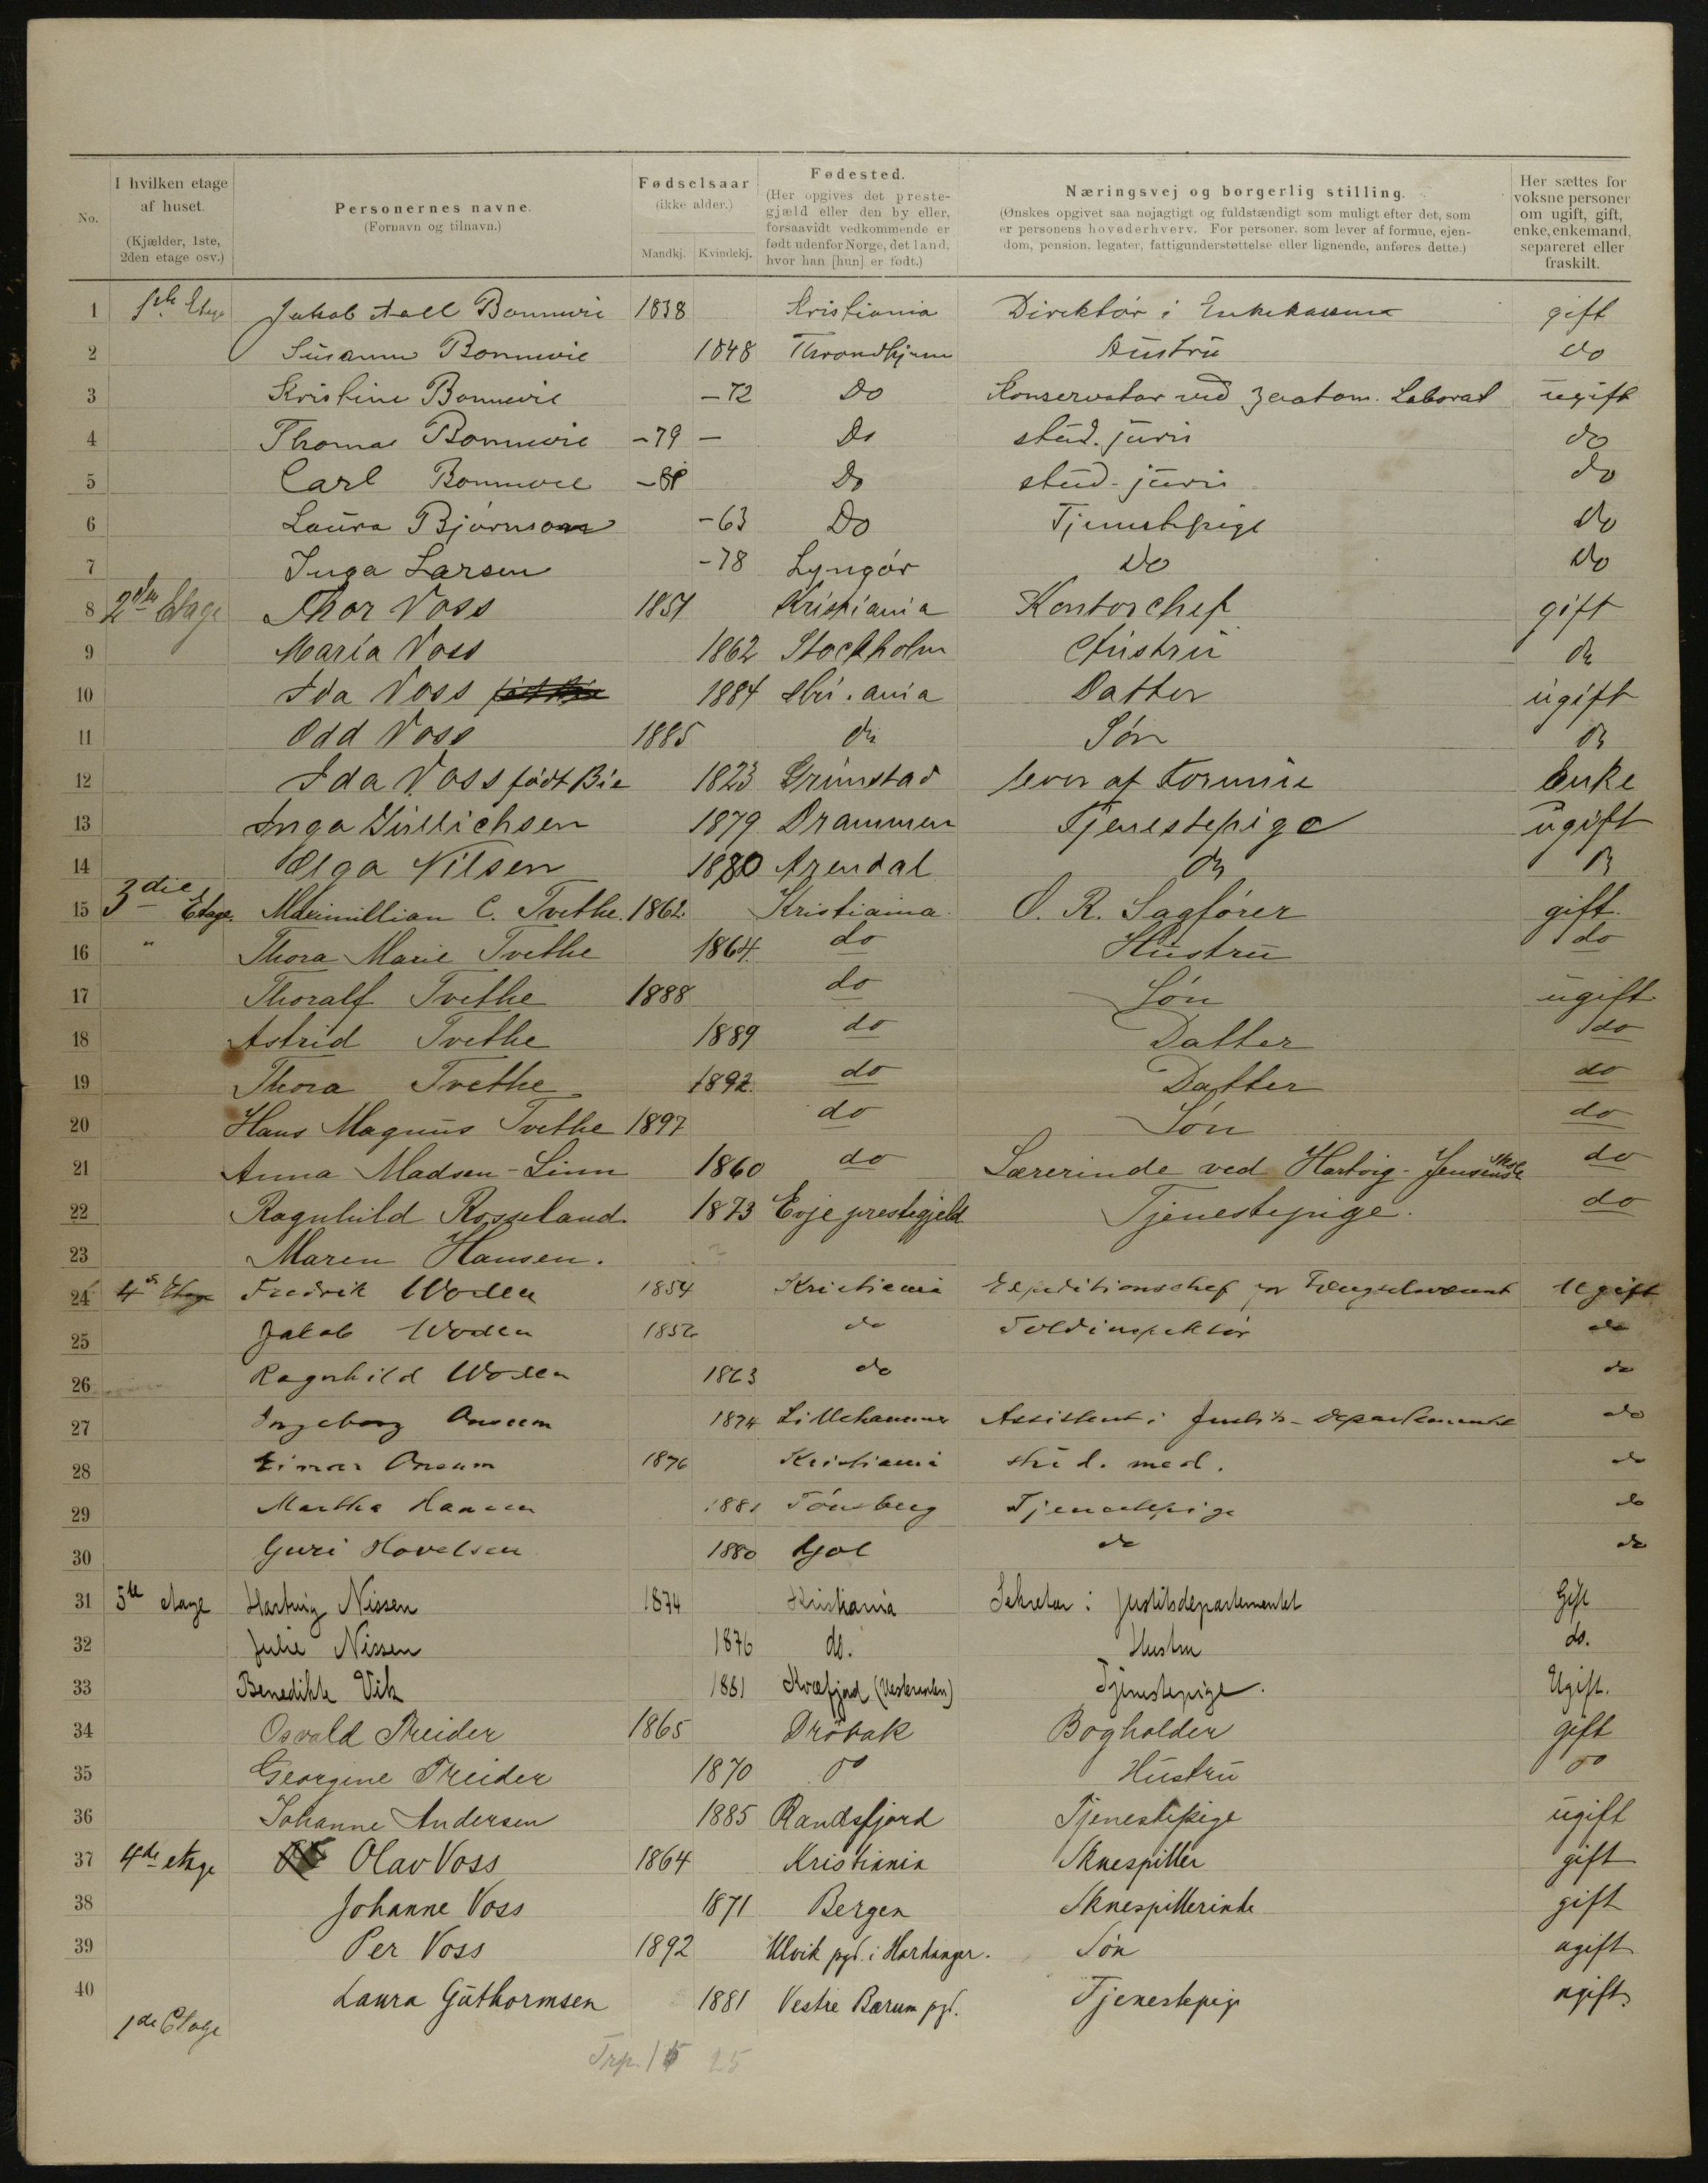 No.
I hvilken etage af huset. (Kjælder, 1ste, 2den etage osv.)
Personernes navne. (Fornavn og tilnavn.)
Fødselsaar (ikke alder.) Mandkj. Kvindekj.
Fødested. (Her opgives det prestegjæld eller den by eller, forsaavidt vedkommende er født udenfor Norge, det land, hvor han [hun] er født.)
Næringsvej og borgerlig stilling. (Ønskes opgivet saa nøjagtigt og fuldstændigt som muligt efter det, som er personens hovederhverv. For personer, som lever af formue, ejendom, pension, legater, fattigunderstøttelse eller lignende, anføres dette.)
Her sættes for voksne personer om ugift, gift, enke, enkemand, separeret eller fraskilt.
1 1ste Etage Jakob Aall Bonnevie 1838 Kristiania Direktør i Enkekassen gift
2 Susanne Bonnevie 1848 Throndhjem Hustru do
3 Kristine Bonnevie -72 Do Konservator ved zootom. Laborat ugift
4 Thomas Bonnevie -79 - Do stud. juris do
5 Carl Bonnevie Do stud. juris do
6 Laura Bjørnson -63 Do Tjenestepige do
7 Inga Larsen -78 Lyngør Do do
8 2den Etage Thor Voss 1851 Kristiania Kontorchef gift
9 Maria Voss 1862 Stockholm Hustru do
10 Ida Voss 1884 Kri.ania Datter ugift
11 Odd Voss 1885 do Søn do
12 Ida Voss født Bie 1823 Grimstad lever af Formue Enke
13 Inga Gullichsen 1879 Drammen Tjenestepige ugift
14 Olga Nilsen 1880 Arendal do do
15 3die Etage. Maximillian C. Tvethe. 1862. Kristiania. O. R. Sagfører gift.
16 " Thora Marie Tvethe 1864. do Hustru do
17 Thoralf Tvethe 1888 do Søn ugift
18 Astrid Tvethe 1889 do Datter do
19 Thora Tvethe 1892. do Datter do
20 Hans Magnus Tvethe 1897 do Søn do
21 Anna Madsen-Linn 1860 do Lærerinde ved Hartvig-Jensens Skole do
22 Ragnhild Rosseland. 1873 Evje prestegjeld Tjenestepige. do
23 Maren Hansen.
24 4de Etage Fredrik Woxen 1854 Kristiania Expeditionschef for Fængselsvæsnet Ugift
25 Jakob Woxen 1856 do Toldinspektør do
26 Ragnhild Woxen 1863 do do
27 Ingeborg Onsum 1874 Lillehammer Assistent i Justis-Departementet do
28 Einar Onsum 1876 Kristiania stud. med. do
29 Martha Hansen 1881 Tønsberg Tjenestepige do
30 Guri Hovelsen 1880 Gol do do
31 5te etage Hartvig Nissen 1874 Kristiania Sekretær i Justitsdepartementet Gift
32 Julie Nissen 1876 do. Hustru do.
33 Benedikte Vik 1881 Kvæfjord (Vesteraalen) Tjenestepige. Ugift.
34 Osvald Treider 1865 Drøbak Bogholder gift
35 Georgine Treider 1870 do Hustru do
36 Johanne Andersen 1885 Randsfjord Tjenestepige ugift
37 4de etage Olav Voss 1864 Kristiania Skuespiller gift
38 Johanne Voss 1871 Bergen Skuespillerinde gift
39 Per Voss 1892 Ulvik pgd. i Hardanger. Søn ugift
40 Laura Guthormsen 1881 Vestre Bærum pgd. Tjenestepige ugift
1de Etage
25